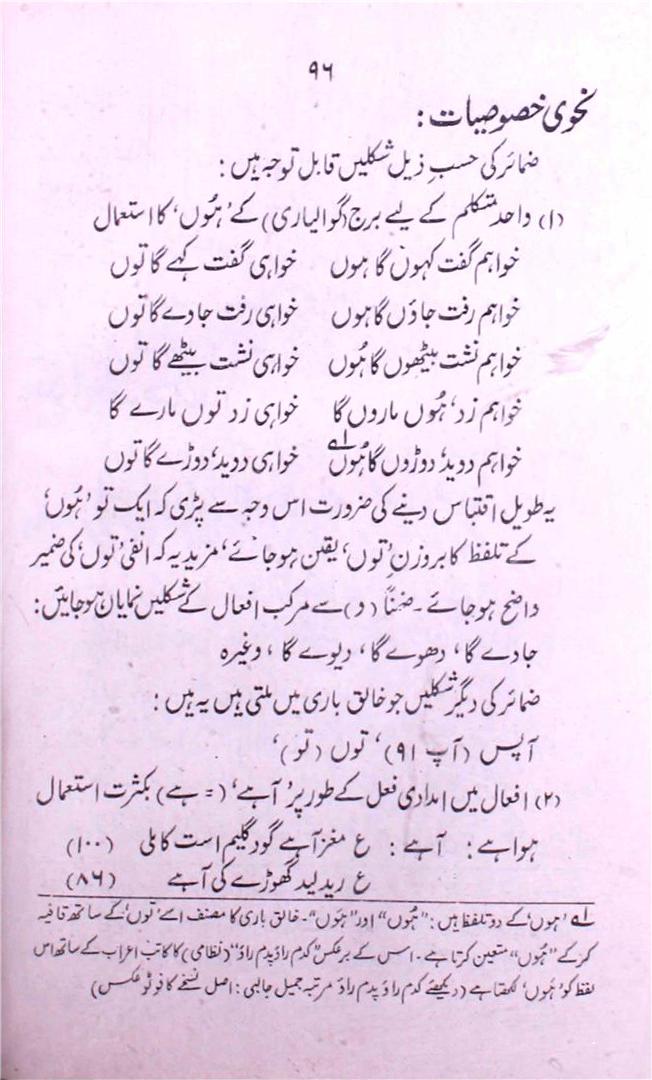 ۹۶
نحوی خصوصیات :
ضمائر کی حسبِ ذیل شکلیں قابل توجہ ہیں :
(۱) واحد متکلم کے لیے برج (گوالیاری) کے 'ہُوں' کا استعمال
خواہم گفت کہوں گا ہوں خواہی گفت کہے گا توں
خواہم رفت جاؤں گا ہوں خواہی رفت جاوے گا توں
خواہم نشت بیٹھوں گا ہُوں خواہی نشت بیٹھے گا توں
خواہم زد، ہُوں ماروں گا خواہی زد توں مارے گا
خواہم دوید، دوڑوں گا ہُوں لہ خواہی دوید، دوڑے گا توں
یہ طویل اقتباس دینے کی ضرورت اس وجہ سے پڑی کہ ایک تو 'ہُوں'
کے تلفظ کا بروزنِ 'توں' یقین ہو جائے، مزید یہ کہ انفی 'توں' کی ضمیر
واضح ہو جائے۔ ضمناً (و) سے مرکب افعال کے شکلیں نمایاں ہو جائیں :
جاوے گا، دھووے گا، دیوے گا، وغیرہ
ضمائر کی دیگر شکلیں جو خالق باری میں ملتی ہیں یہ ہیں :
آپس (آپ ۹۱)، توں (تو)،
(۲) افعال میں امدادی فعل کے طور پر 'آہے' (= ہے) بکثرت استعمال
ہوا ہے : آہے : ع مغز آہے گود گلیم است کاملی (۱۰۰)
ع رید لید گھوڑے کی آہے (۸۶)
لہ 'ہوں' کے دو تلفظ ہیں : "ہُوں" اور "ہَوں"۔ خالق باری کا مصنف اسے 'توں' کے ساتھ قافیہ
کر کے "ہُوں" متعین کرتا ہے۔ اس کے برعکس "کدم راؤ پدم راؤ" (نظامی) کا کاتب اعراب کے ساتھ اس
لفظ کو 'ہَوں' لکھتا ہے (دیکھئے کدم راؤ پدم راؤ مرتبہ جمیل جالبی : اصل نسخے کا فوٹو عکس)